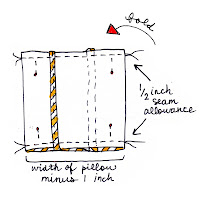 fold
1/2 inch
seam
allowance
width of pillow
minus 1 inch